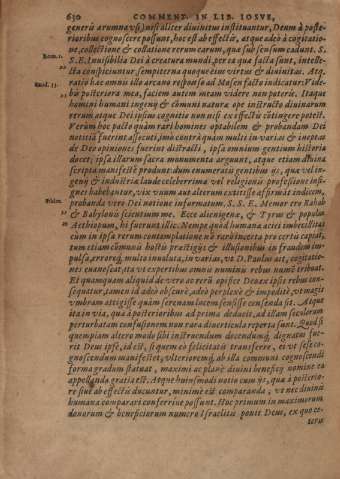 630 COMMENT. IN LIB. IOSVE,
generis arumna vsq; nisi aliter diuinitus instituantur, Deum à poste-
rioribus cognoscere possunt, hoc est ab effectis, atque adeò à cogitatio-
ne, collectione & collatione rerum earum, quæ sub sensum cadunt. S.
Rom. 1. S. E. Inuisibilia Dei à creatura mundi, per ea quæ facta sunt, intelle-
cta conspiciuntur: sempiterna quoque eius virtus & diuinitas. Atq.
ratio hæc omnis illo arcano responso ad Mosen facto indicatur: Vide-
Exod. 33. bis posteriora mea, faciem autem meam videre non poteris. Itaque
homini humani ingenij & communi natura ope instructo diuinarum
rerum atque Dei ipsius cognitio non nisi ex effectis cōtingere potest.
Verùm hoc pacto quàm rari homines optabilem & probandam Dei
notitiā fuerint assecuti, imò contrà quàm multi in varias & ineptas
de Deo opiniones fuerint distracti, ipsa omnium gentium historia
docet; ipsa illarum sacra monumenta arguunt, atque etiam diuina
scripta manifestè produnt: dum enumeratis gentibus ijs, quæ vel in-
genij & industriæ laude celeberrimæ vel religionis professione insi-
gnes habebantur, vix vnum aut alterum extitisse affirmāt indicem,
Psal. 86. probanda vero Dei notione informatum. S. S. E. Memor ero Rahab
& Babylonis scientium me. Ecce alienigenæ, & Tyrus & populus
Aethiopum, hi fuerunt illic. Nempe quòd humana aciei imbecillitas
cùm in ipsa rerum contemplatione nō rarò incerta pro certis capiat,
tum etiam communis hostis præstigijs & illusionibus in fraudem im-
pulsa, erroreq; multo inuoluta, in varias, vt D. Paulus ait, cogitatio-
nes euanescat, ita vt expertibus omnis numinis rebus numē tribuat.
Et quamquam aliquid de vero ac rerū opifice Deo ex ipsis rebus con-
sequatur, tamen id adeò obscurè, adeò perplexè & impeditè, vt magis
vmbram attigisse quàm serenam lucem sensisse censenda sit. Atque
ita in via, qua à posterioribus ad prima deducit, ad illam seculorum
perturbatam confusionem non rara diuerticula reperta sunt. Quòd si
quempiam altero modo sibi instruendum docendumq; dignatus fue-
rit Deus ipse, id est, si quem eò felicitatis transferre, vt vt sese co-
gnoscendum manifestet, vlterioremq; ab illa communi cognoscendi
forma gradum statuat, maximi ac planè diuini beneficij nomine ea
appellanda gratia est. Atque huiusmodi notio cum ijs, quæ à posterio-
re siue ab effectis ducuntur, minimè est comparanda, vt nec diuina
humana comparari conferriue possunt. Hoc primum in maximorum
donorum & beneficiorum numero Israelitis ponit Deus, ex quo ce-
tera